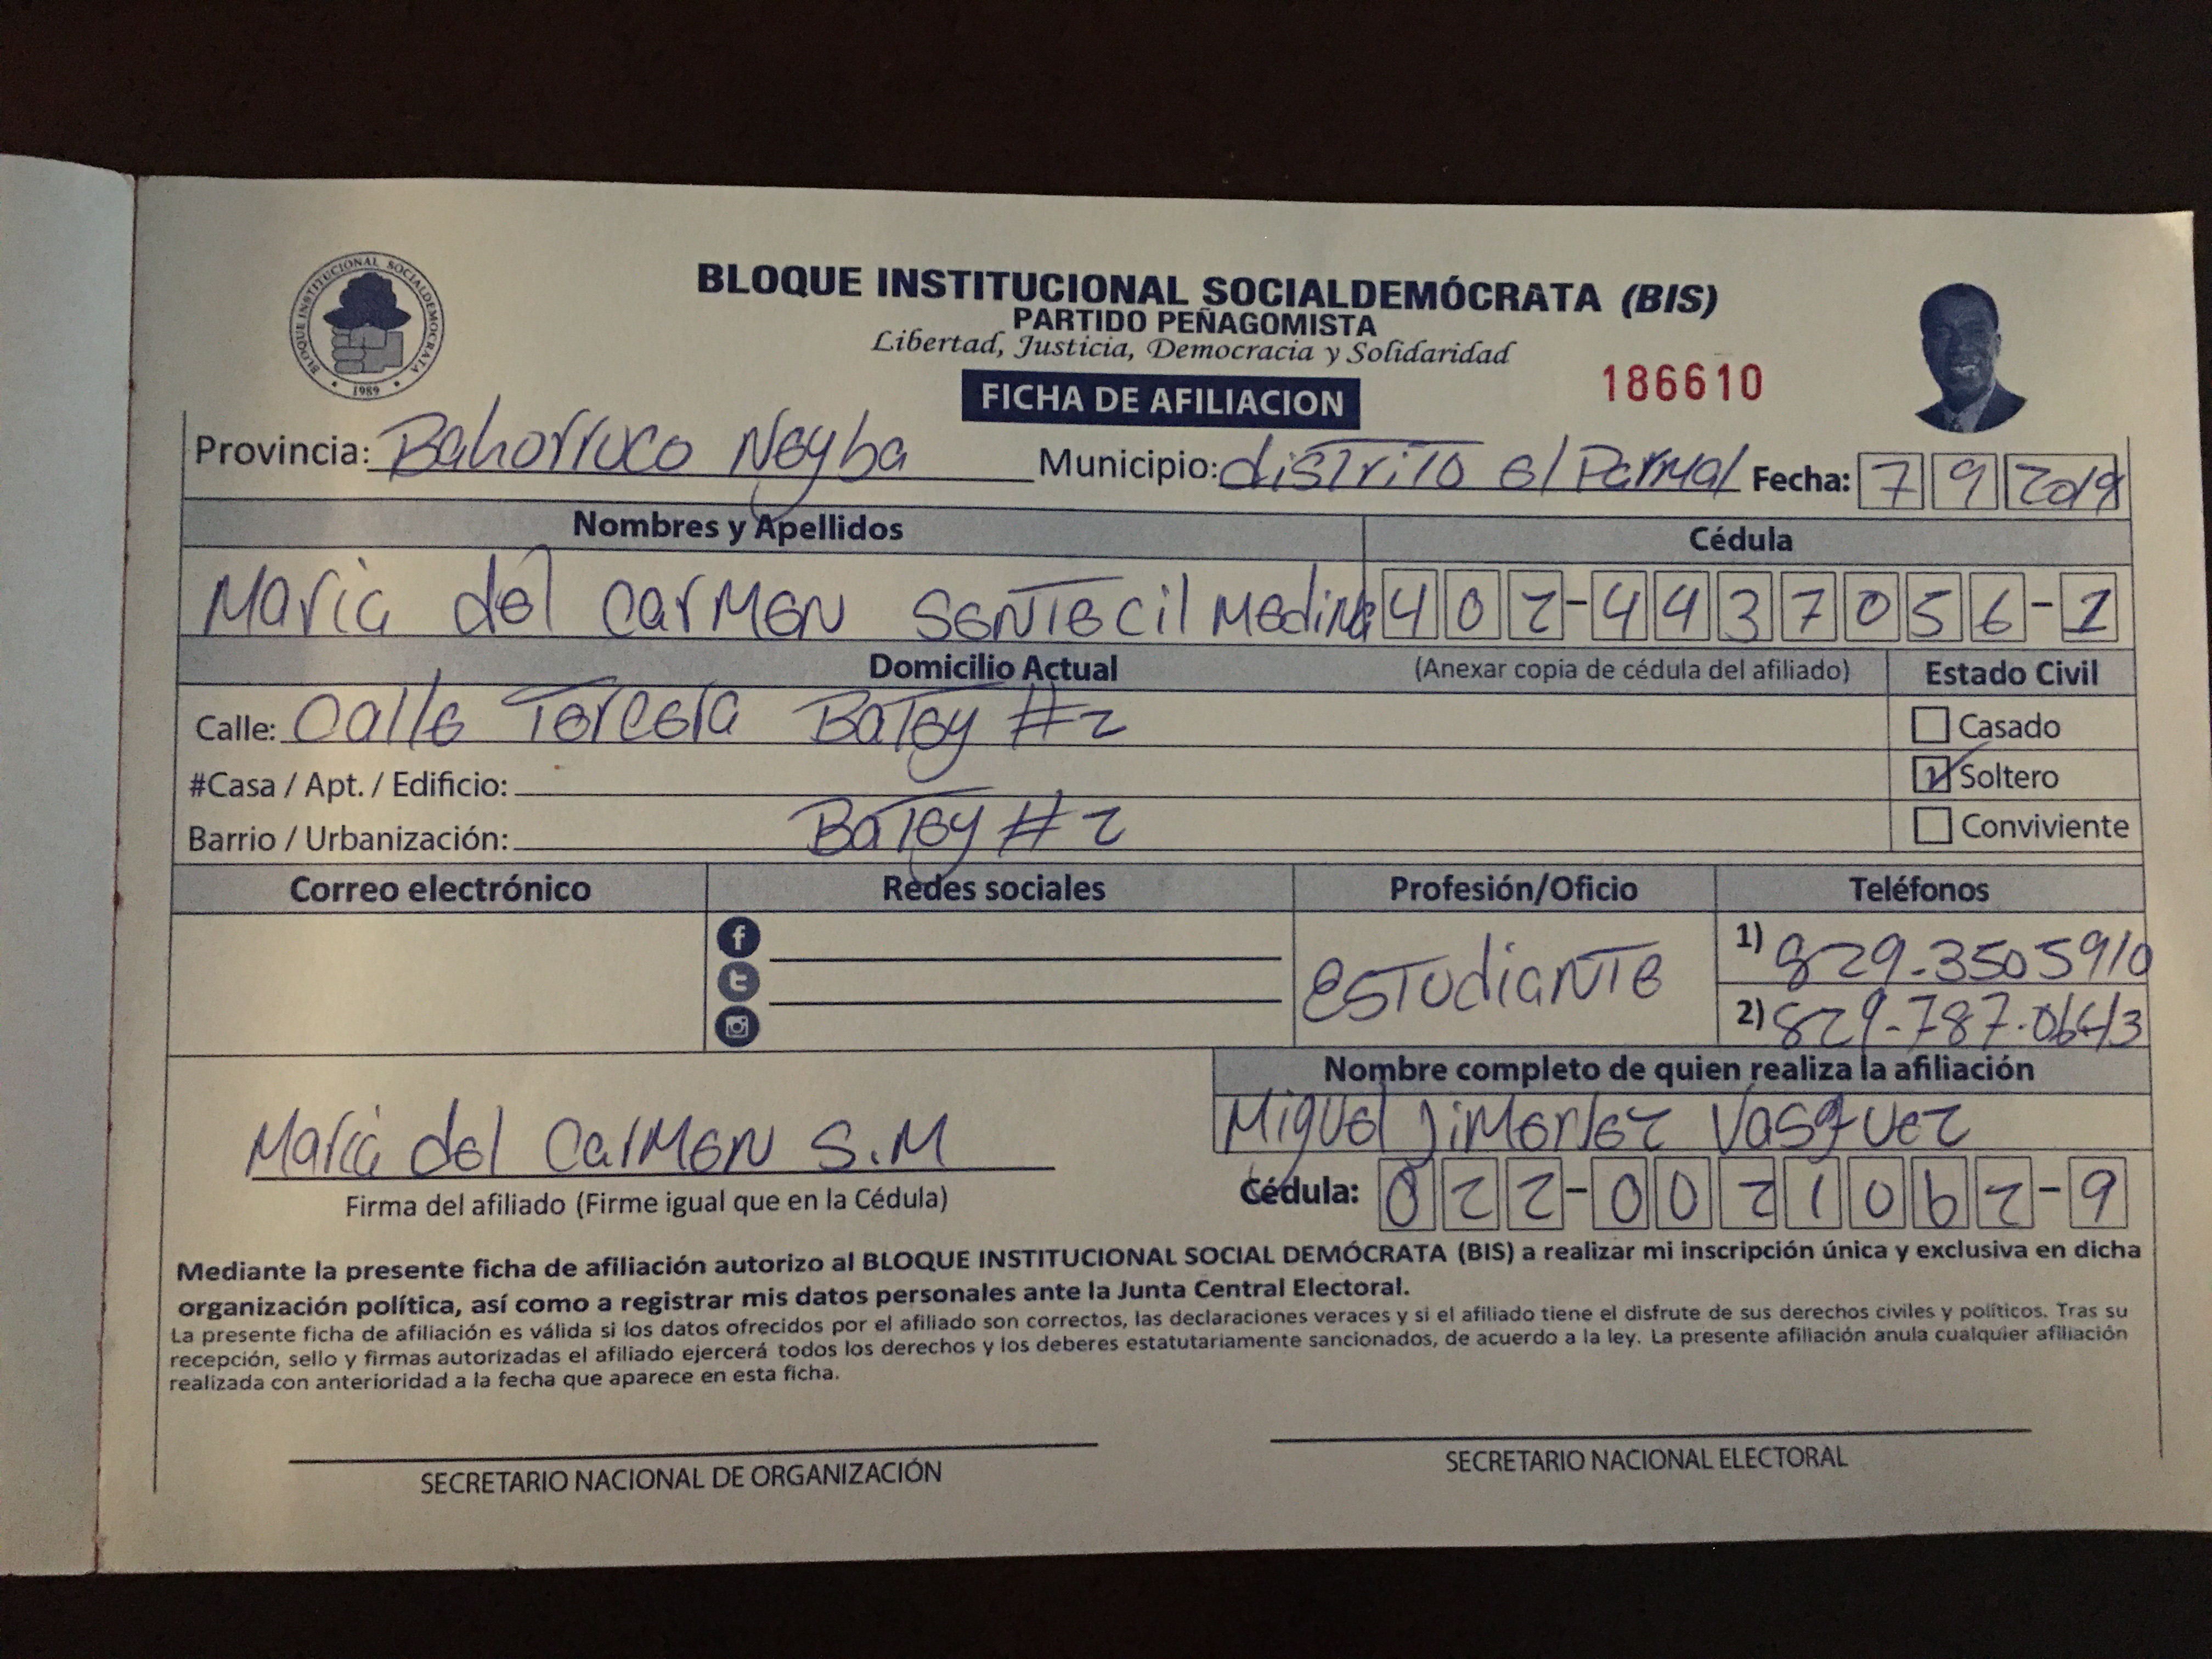 BLOQUE INSTITUCIONAL SOCIALDEMOCRATA
1989
BLOQUE INSTITUCIONAL SOCIALDEMÓCRATA (BIS)
PARTIDO PEÑAGOMISTA
Libertad, Justicia, Democracia y Solidaridad
FICHA DE AFILIACION
186610
Provincia: Bahorruco Neyba Municipio: distrito el Parmal Fecha: 7 9 2019
Nombres y Apellidos Cédula
Maria del carmen Sentecil Medina 402-4437056-1
Domicilio Actual (Anexar copia de cédula del afiliado) Estado Civil
Calle: Calle Tercera Batey #2 Casado
#Casa / Apt. / Edificio: Soltero
Barrio / Urbanización: Batey #2 Conviviente
Correo electrónico Redes sociales Profesión/Oficio Teléfonos
estudiante
1) 829-3505910
2) 829-787-0643
Nombre completo de quien realiza la afiliación
Miguel Jimenez Vasquez
Maria del Carmen S.M
Firma del afiliado (Firme igual que en la Cédula)
Cédula: 022-0021062-9
Mediante la presente ficha de afiliación autorizo al BLOQUE INSTITUCIONAL SOCIAL DEMÓCRATA (BIS) a realizar mi inscripción única y exclusiva en dicha
organización política, así como a registrar mis datos personales ante la Junta Central Electoral.
La presente ficha de afiliación es válida si los datos ofrecidos por el afiliado son correctos, las declaraciones veraces y si el afiliado tiene el disfrute de sus derechos civiles y políticos. Tras su
recepción, sello y firmas autorizadas el afiliado ejercerá todos los derechos y los deberes estatutariamente sancionados, de acuerdo a la ley. La presente afiliación anula cualquier afiliación
realizada con anterioridad a la fecha que aparece en esta ficha.
SECRETARIO NACIONAL DE ORGANIZACIÓN
SECRETARIO NACIONAL ELECTORAL